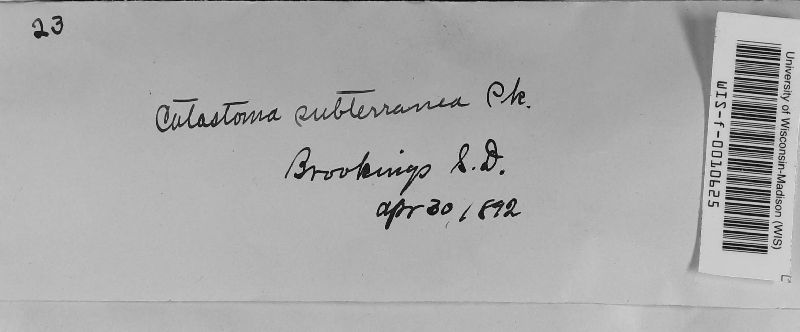 23
Catastoma subterranea Pk.
Brookings S.D.
Apr 30, 1892
University of Wisconsin-Madison (WIS)
WIS-f-0010625